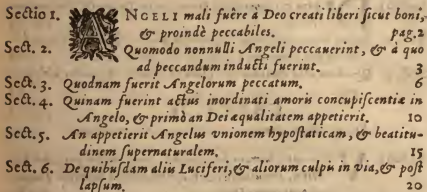 Sectio 1. ANGELI mali fuêre à Deo creati liberi sicut boni,
& proindè peccabiles. pag.2
Sect. 2. Quomodo nonnulli Angeli peccauerint, & à quo
ad peccandum inducti fuerint. 3
Sect. 3. Quodnam fuerit Angelorum peccatum. 6
Sect. 4. Quinam fuerint actus inordinati amoris concupiscentiæ in
Angelo, & primò an Dei æqualitatem appetierit. 10
Sect. 5. An appetierit Angelus vnionem hypostaticam, & beatitu-
dinem supernaturalem. 15
Sect. 6. De quibusdam aliis Luciferi, & aliorum culpis in via, & post
lapsum. 20